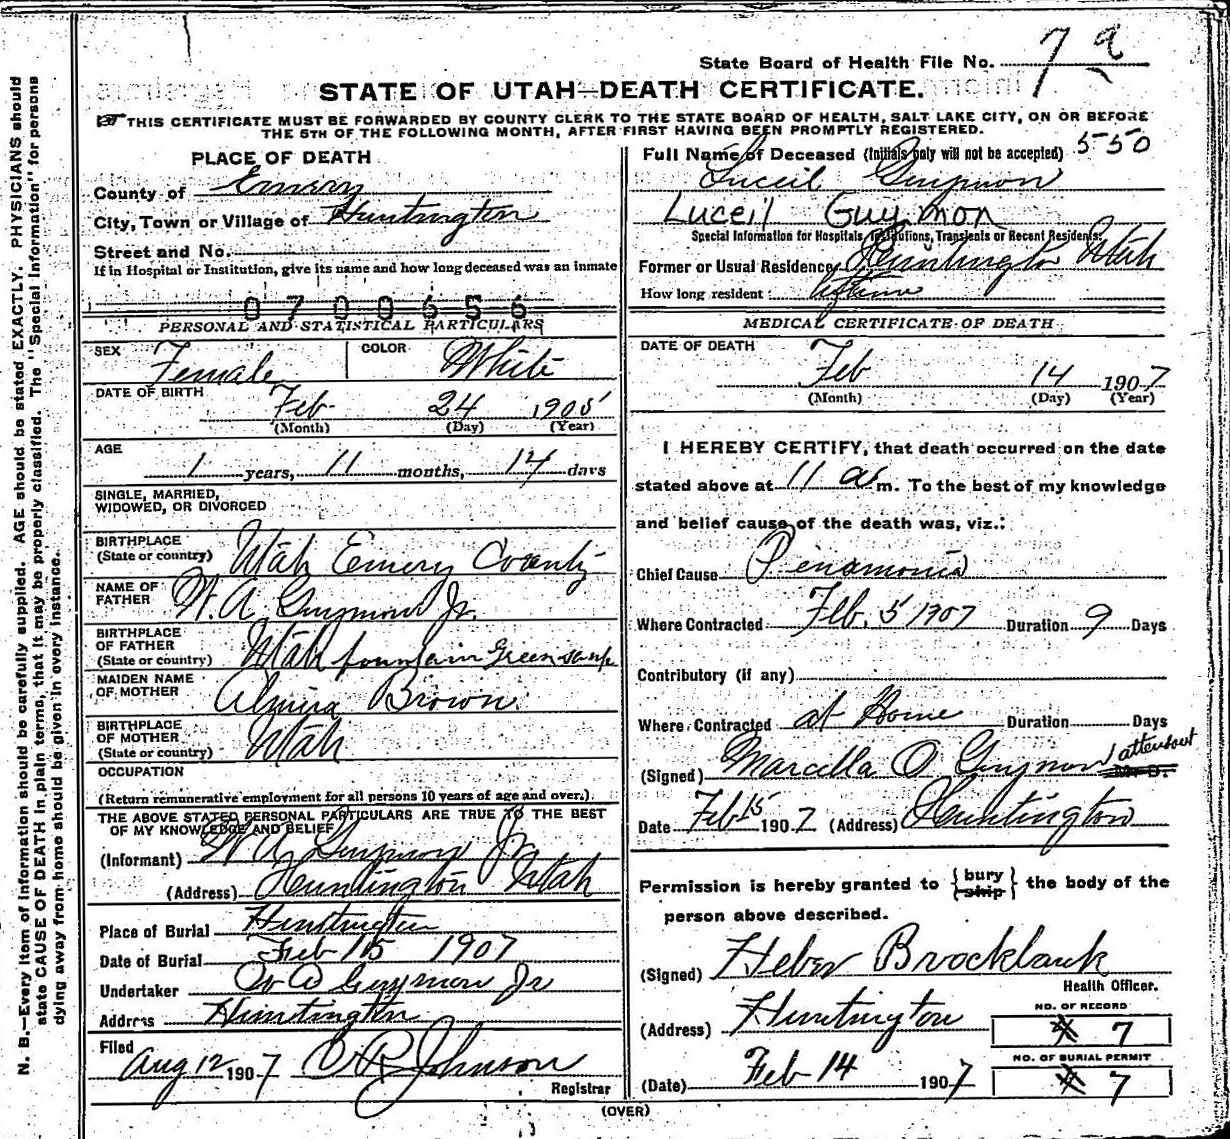 State Board of Health File No. 7 a
STATE OF UTAH—DEATH CERTIFICATE.
THIS CERTIFICATE MUST BE FORWARDED BY COUNTY CLERK TO THE STATE BOARD OF HEALTH, SALT LAKE CITY, ON OR BEFORE
THE 5TH OF THE FOLLOWING MONTH, AFTER FIRST HAVING BEEN PROMPTLY REGISTERED.
PLACE OF DEATH
County of Emery
City, Town or Village of Huntington
Street and No.
If in Hospital or Institution, give its name and how long deceased was an inmate
0700656
PERSONAL AND STATISTICAL PARTICULARS
SEX Female COLOR White
DATE OF BIRTH Feb 24 1905
(Month) (Day) (Year)
AGE
1 years, 11 months, 14 days
SINGLE, MARRIED,
WIDOWED, OR DIVORCED
BIRTHPLACE
(State or country) Utah Emery County
NAME OF
FATHER W. A Guymon Jr.
BIRTHPLACE
OF FATHER
(State or country) Utah fountain Green
MAIDEN NAME
OF MOTHER Almira Brown
BIRTHPLACE
OF MOTHER
(State or country) Utah
OCCUPATION
(Return remunerative employment for all persons 10 years of age and over.)
THE ABOVE STATED PERSONAL PARTICULARS ARE TRUE TO THE BEST
OF MY KNOWLEDGE AND BELIEF
(Informant) W A Guymon Jr
(Address) Huntington Utah
Place of Burial Huntington
Date of Burial Feb 15 1907
Undertaker W A Guymon Jr
Address Huntington
Filed
Aug 12 1907 Johnson
Registrar
Full Name of Deceased (Initials only will not be accepted) 550
Luceil Guymon
Luceil Guymon
Special Information for Hospitals, Institutions, Transients or Recent Residents:
Former or Usual Residence Huntington Utah
How long resident: liftime
MEDICAL CERTIFICATE OF DEATH
DATE OF DEATH
Feb 14 1907
(Month) (Day) (Year)
I HEREBY CERTIFY, that death occurred on the date
stated above at 11 a m. To the best of my knowledge
and belief cause of the death was, viz.:
Chief Cause Penamonia
Where Contracted Feb. 5 1907 Duration 9 Days
Contributory (if any)
Where Contracted at Home Duration Days
(Signed) Marcella O Guymon attendant M. D.
Date Feb 15 1907 (Address) Huntington
Permission is hereby granted to { bury ship } the body of the
person above described.
(Signed) Heber Brockbank
Health Officer.
(Address) Huntington
NO. OF RECORD
# 7
NO. OF BURIAL PERMIT
# 7
(Date) Feb 14 1907
(OVER)
N. B.—Every item of information should be carefully supplied. AGE should be stated EXACTLY. PHYSICIANS should
state CAUSE OF DEATH in plain terms, that it may be properly classified. The "Special Information" for persons
dying away from home should be given in every instance.